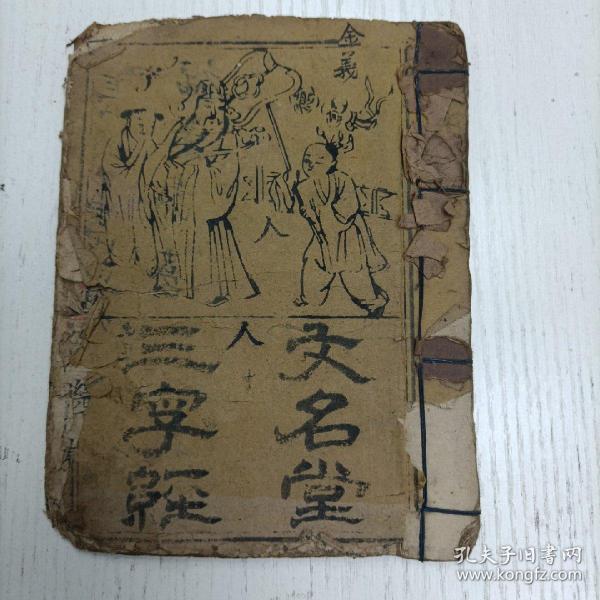 金義
人
人
文名堂
三字經
孔夫子旧书网
www.kongfz.com